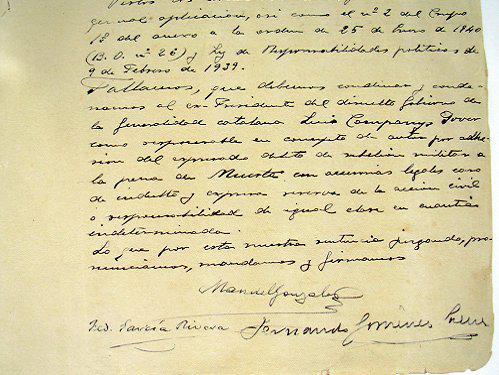 general aplicación, así como el nº 2 del Grupo
1º del anexo a la orden de 25 de Enero de 1940
(B. O. nº 26) y Ley de Responsabilidades políticas de
9 de Febrero de 1939.
Fallamos, que debemos condenar y conde-
namos al ex-Presidente del disuelto Gobierno de
la Generalidad catalana Luis Companys Jover
como responsable en concepto de autor por adhe-
sion del expresado delito de rebelión militar a
la pena de Muerte con accesorias legales caso
de indulto y expresa reserva de la accion civil
o responsabilidad de igual clase en cuantía
indeterminada.
Lo que por esta nuestra sentencia juzgando, pro-
nunciamos, mandamos y firmamos
Manuel Gonzalez
Fed. García Rivera Fernando Giménez